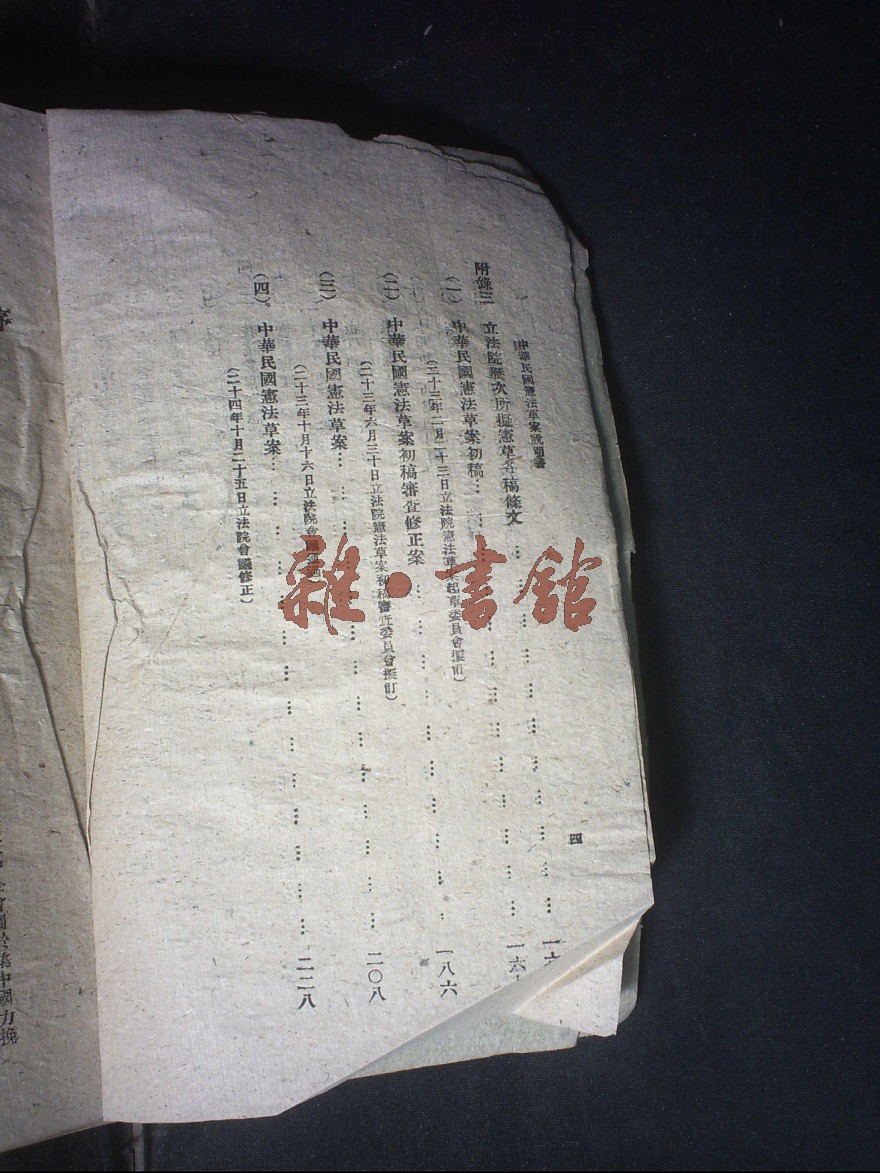 中華民國憲法草案說明書
四
附錄三 立法院歷次所擬憲草各稿條文………一六
(一) 中華民國憲法草案初稿………一六
(二十三年二月二十三日立法院憲法草案起草委員會擬訂)
(二) 中華民國憲法草案初稿審查修正案………一八六
(二十三年六月三十日立法院憲法草案初稿審查委員會擬訂)
(三) 中華民國憲法草案………二〇八
(二十三年十月十六日立法院會議通過)
(四) 中華民國憲法草案………二二八
(二十四年十月二十五日立法院會議修正)
序
全會關於集中國力挽
雜·書館